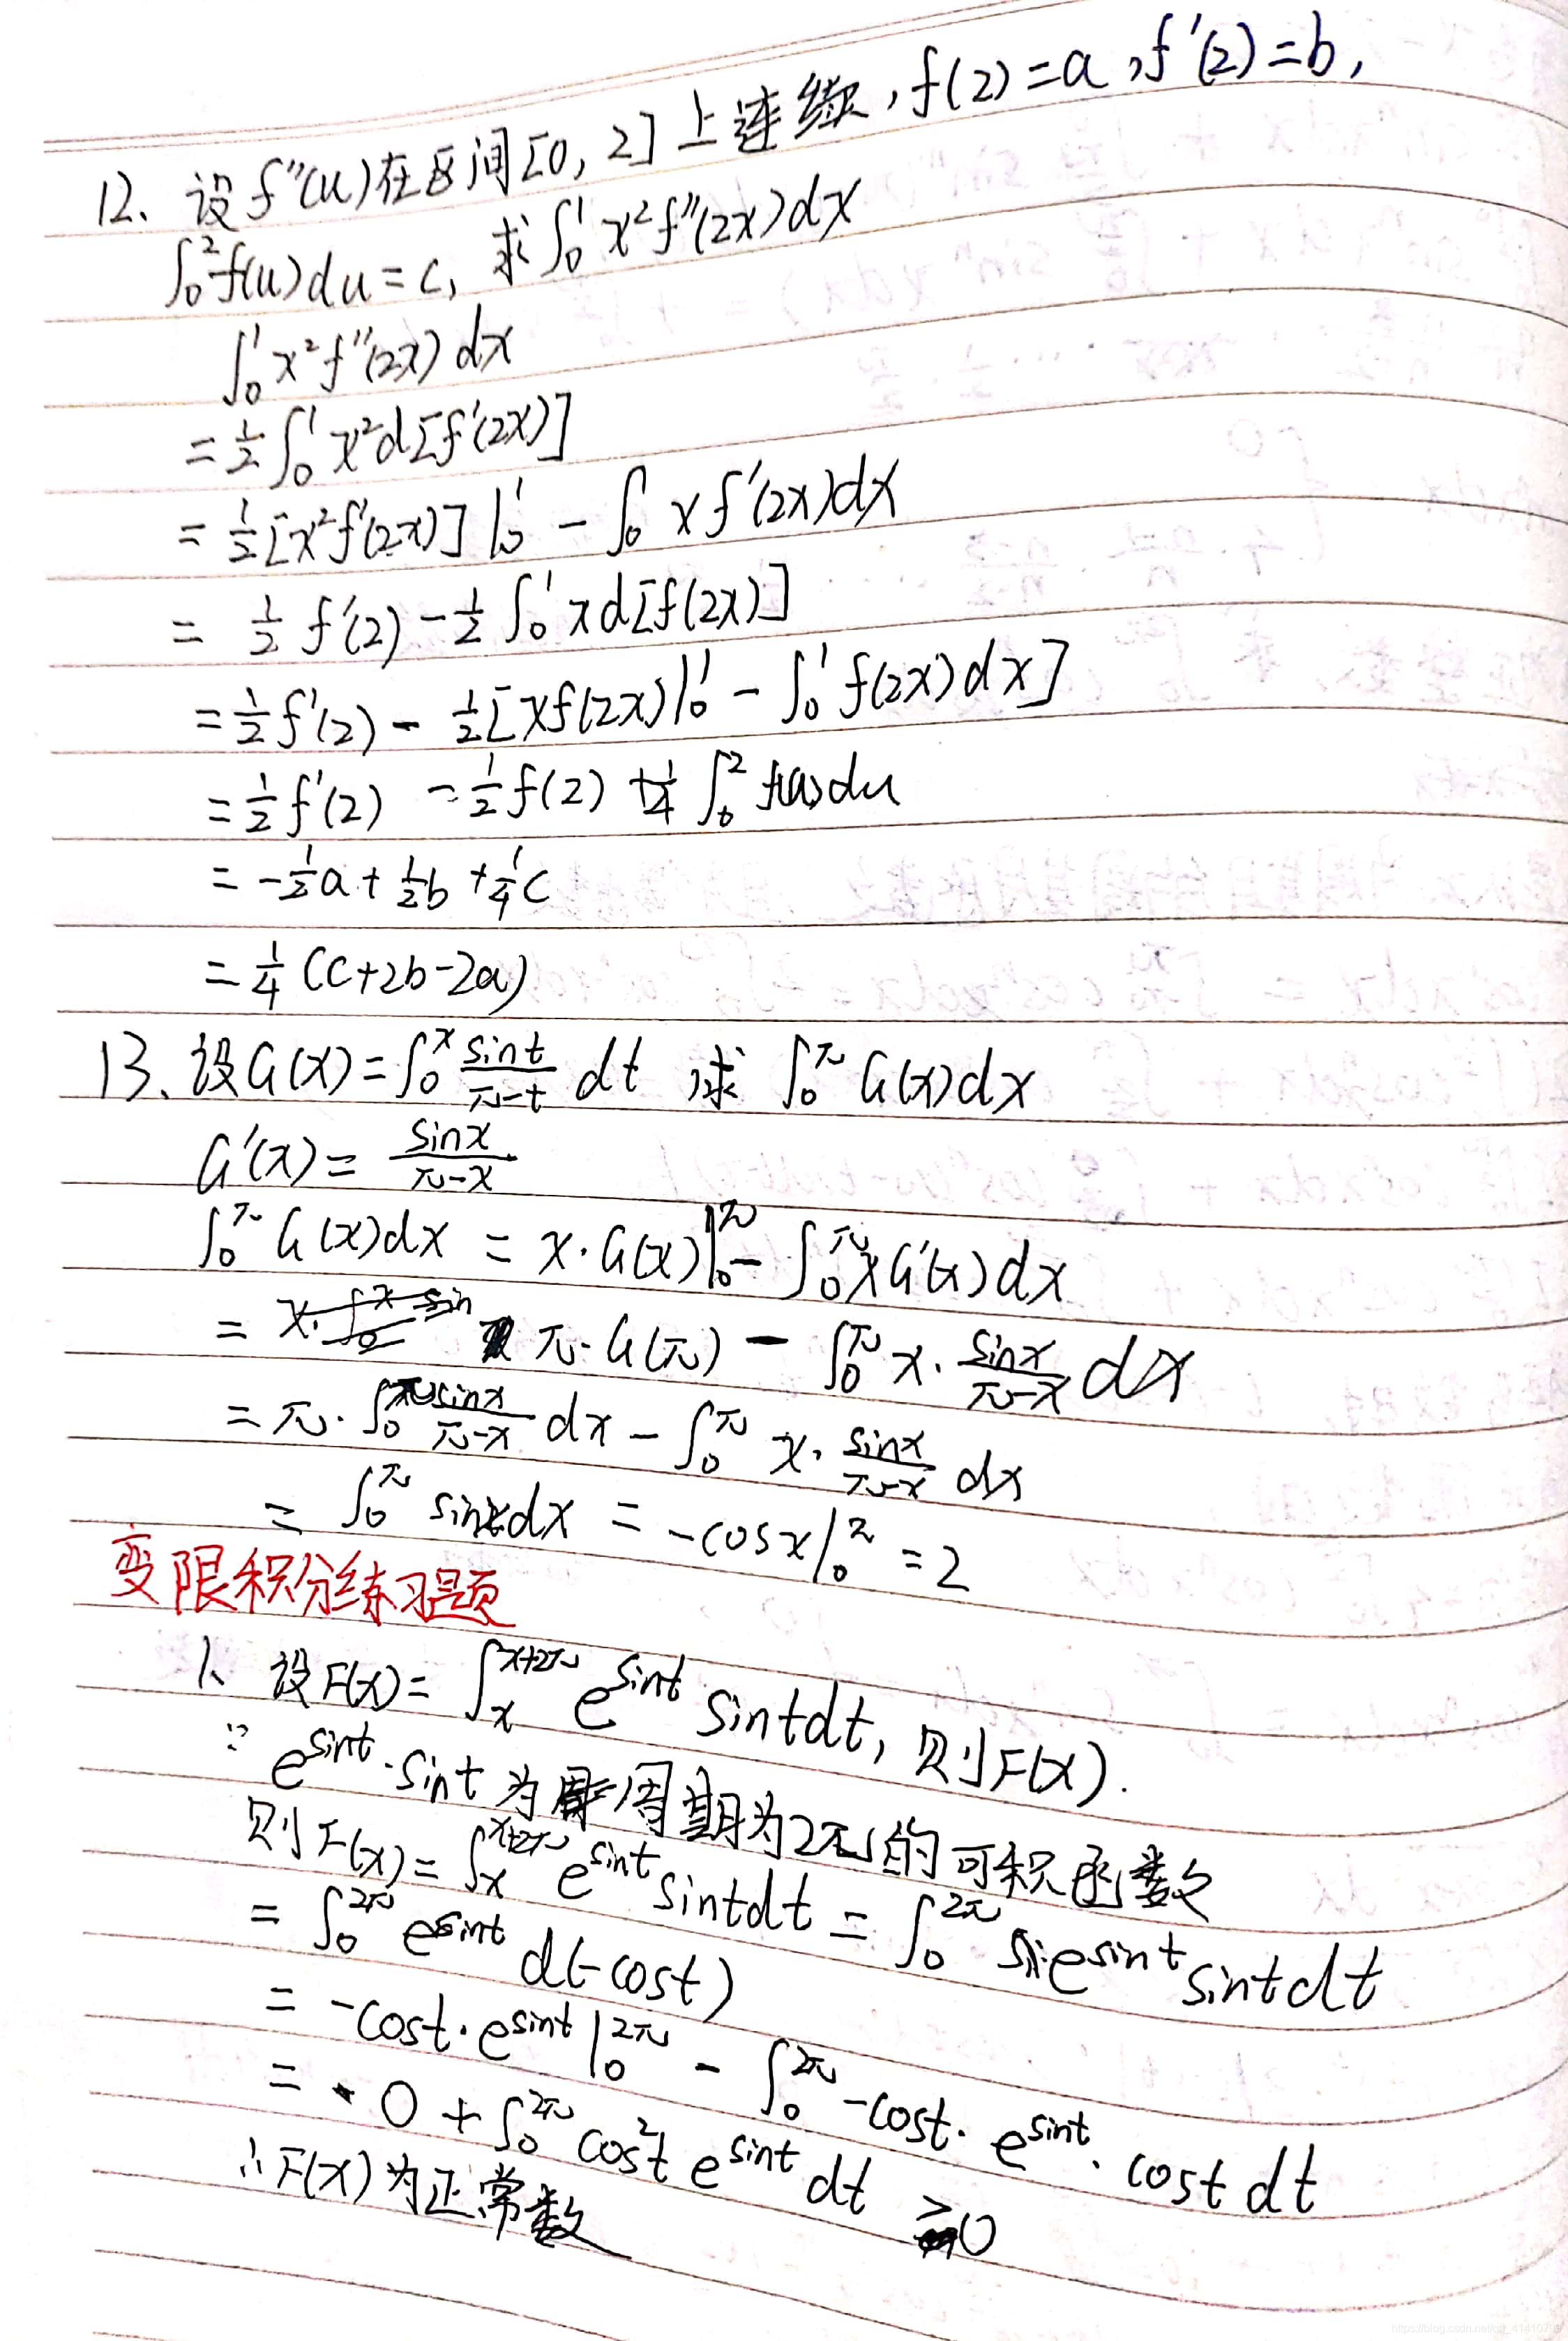 12、设f″(u)在区间[0, 2]上连续, f(2)=a, f′(2)=b,
∫₀²f(u)du=c, 求∫₀¹x²f″(2x)dx
∫₀¹x²f″(2x)dx
=½∫₀¹x²d[f′(2x)]
=½[x²f′(2x)]|₀¹ - ∫₀¹ x f′(2x)dx
= ½ f′(2) - ½ ∫₀¹ x d[f(2x)]
=½f′(2) - ½[xf(2x)|₀¹ - ∫₀¹ f(2x)dx]
=½f′(2) - ½f(2) + ¼ ∫₀² f(u)du
= -½a + ½b + ¼c
= ¼(c+2b-2a)
13、设G(x)=∫₀ˣ sint/(π-t) dt, 求 ∫₀^π G(x)dx
G′(x)= sinx/(π-x)
∫₀^π G(x)dx = x·G(x)|₀^π - ∫₀^π xG′(x)dx
= π·G(π) - ∫₀^π x· sinx/(π-x) dx
= π·∫₀^π sinx/(π-x) dx - ∫₀^π x· sinx/(π-x) dx
= ∫₀^π sinxdx = -cosx|₀^π = 2
变限积分练习题
1、设F(x)= ∫ₓ^(x+2π) e^sint sintdt, 则F(x).
∵ e^sint·sint为周期为2π的可积函数
则F(x)=∫ₓ^(x+2π) e^sint sintdt = ∫₀^2π e^sint sintdt
= ∫₀^2π e^sint d(-cost)
= -cost·e^sint|₀^2π - ∫₀^2π -cost·e^sint·costdt
= 0 + ∫₀^2π cos²t e^sint dt ≥0
∴F(x)为正常数